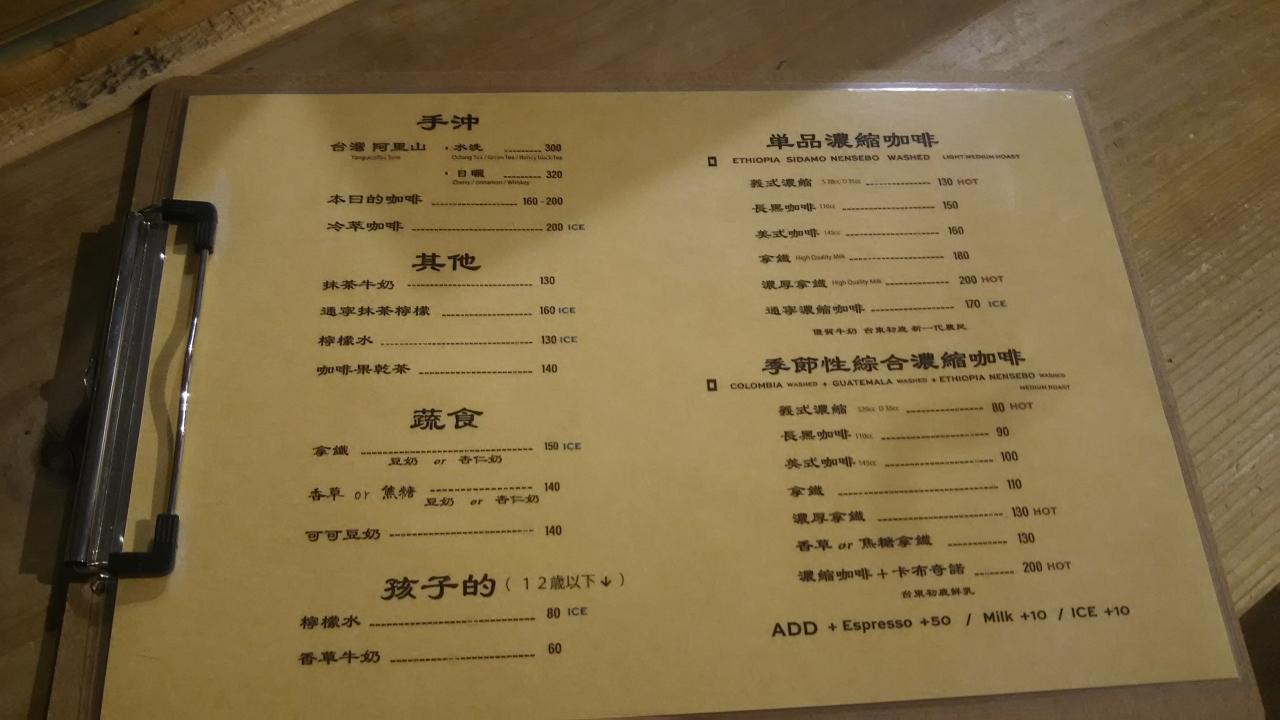 手沖
台灣 阿里山 ・水洗 300
Oolong Tea / Green Tea / Honey black Tea
・日曬 320
Cherry / cinnamon / Whiskey
本日的咖啡 160-200
冷萃咖啡 200 ICE
其他
抹茶牛奶 130
通寧抹茶檸檬 160 ICE
檸檬水 130 ICE
咖啡果乾茶 140
蔬食
拿鐵 150 ICE
豆奶 or 杏仁奶
香草 or 焦糖 140
豆奶 or 杏仁奶
可可豆奶 140
孩子的(12歲以下↓)
檸檬水 80 ICE
香草牛奶 60
単品濃縮咖啡
ETHIOPIA SIDAMO NENSEBO WASHED LIGHT MEDIUM ROAST
義式濃縮 130 HOT
長黑咖啡 110cc 150
美式咖啡 145cc 160
拿鐵 High Quality Milk 180
濃厚拿鐵 High Quality Milk 200 HOT
通寧濃縮咖啡 170 ICE
優質牛奶 台東初鹿 新一代農民
季節性綜合濃縮咖啡
COLOMBIA WASHED + GUATEMALA WASHED + ETHIOPIA NENSEBO WASHED
MEDIUM ROAST
義式濃縮 80 HOT
長黑咖啡 110cc 90
美式咖啡 145cc 100
拿鐵 110
濃厚拿鐵 130 HOT
香草 or 焦糖拿鐵 130
濃縮咖啡+卡布奇諾 200 HOT
台東初鹿鮮乳
ADD + Espresso +50 / Milk +10 / ICE +10